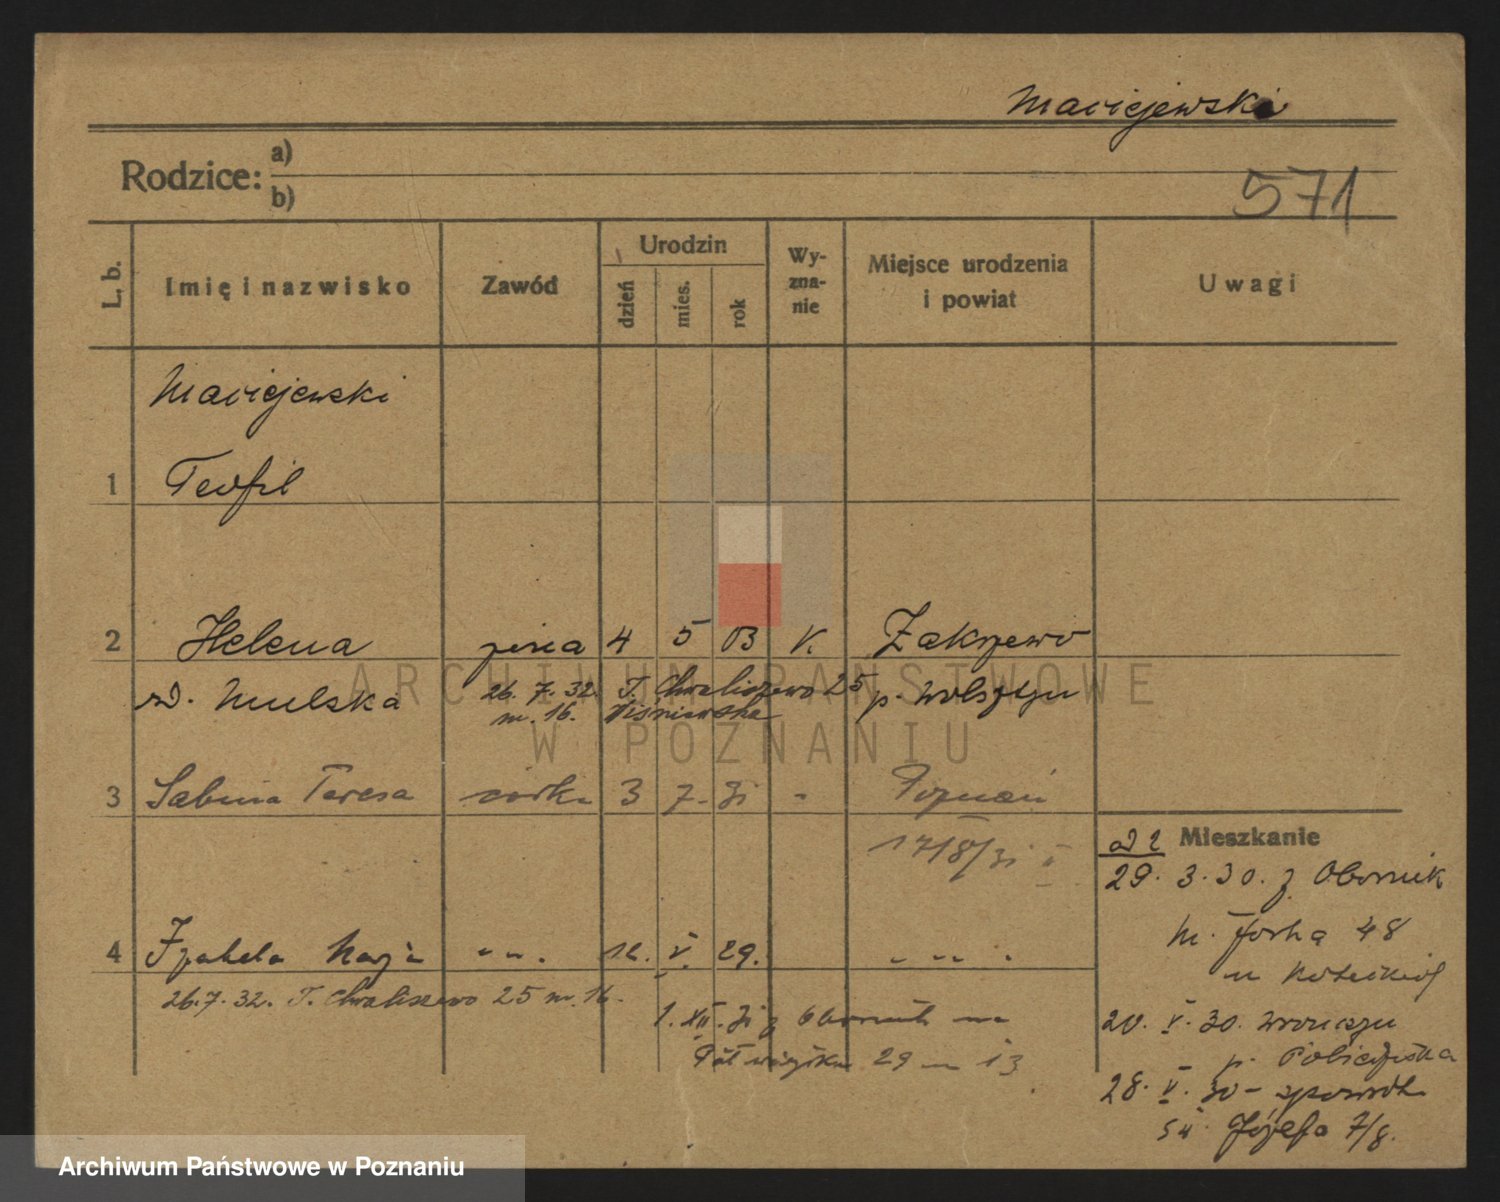 Maciejewski
Rodzice: a)
b)
571
L. b.
Imię i nazwisko
Zawód
Urodzin
dzień
mies.
rok
Wy-
zna-
nie
Miejsce urodzenia
i powiat
Uwagi
Maciejewski
1 Teofil
2 Helena żona 4 5 03 k. Zakrzewo
26. 7. 32. T. Chwaliszewo 25 p. Wolsztyn
m. 16. Wiśniewska
3 Sabina Teresa córka 3 7. 31 Poznań
17/8/31
Mieszkanie
od 2
29. 3. 30. z Obornik
48
4 Izabela Marja 12. V. 29.
26. 7. 32. T. Chwaliszewo 25 m. 16.
1. XII. 31 z Obornik na
29 m 13
20. V. 30.
28. V. 30
Józefa 7/8.
ARCHIWUM PAŃSTWOWE
W POZNANIU
Archiwum Państwowe w Poznaniu